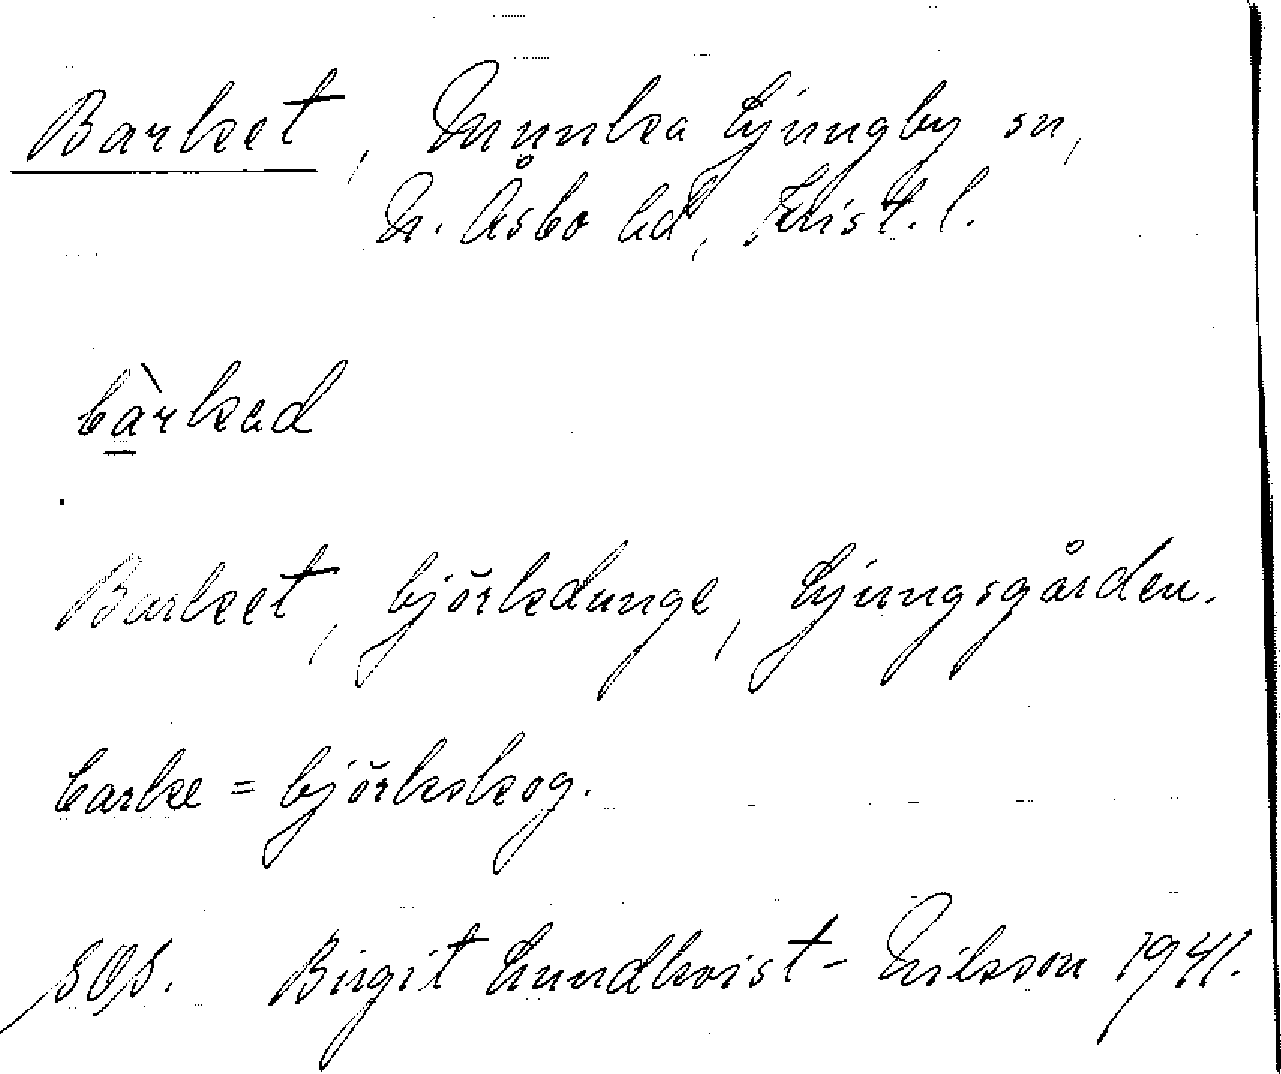 Barket, Munka Ljungby sn,
N. Åsbo hd, Krist. l.
bàrkəd
Barket, björkdunge, Ljungsgården.
barke = björkskog.
SOS. Birgit Lundkvist-Nilsson 1941.